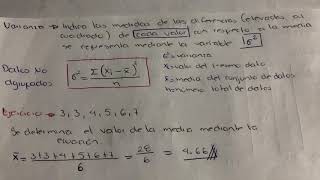 Varianza → Indica las medidas de las diferencias (elevadas al
cuadrado) de cada valor con respecto a la media
se representa mediante la variable σ²
Datos No agrupados
σ² = Σ(xi - x̄)² / n
σ² = varianza
xi = valor del i-esimo dato
x̄ = media del conjunto de datos
n = número total de datos
Ejercicio → 3, 3, 4, 5, 6, 7
Se determina el valor de la media mediante la
ecuación.
x̄ = 3+3+4+5+6+7 / 6 = 28 / 6 = 4.66